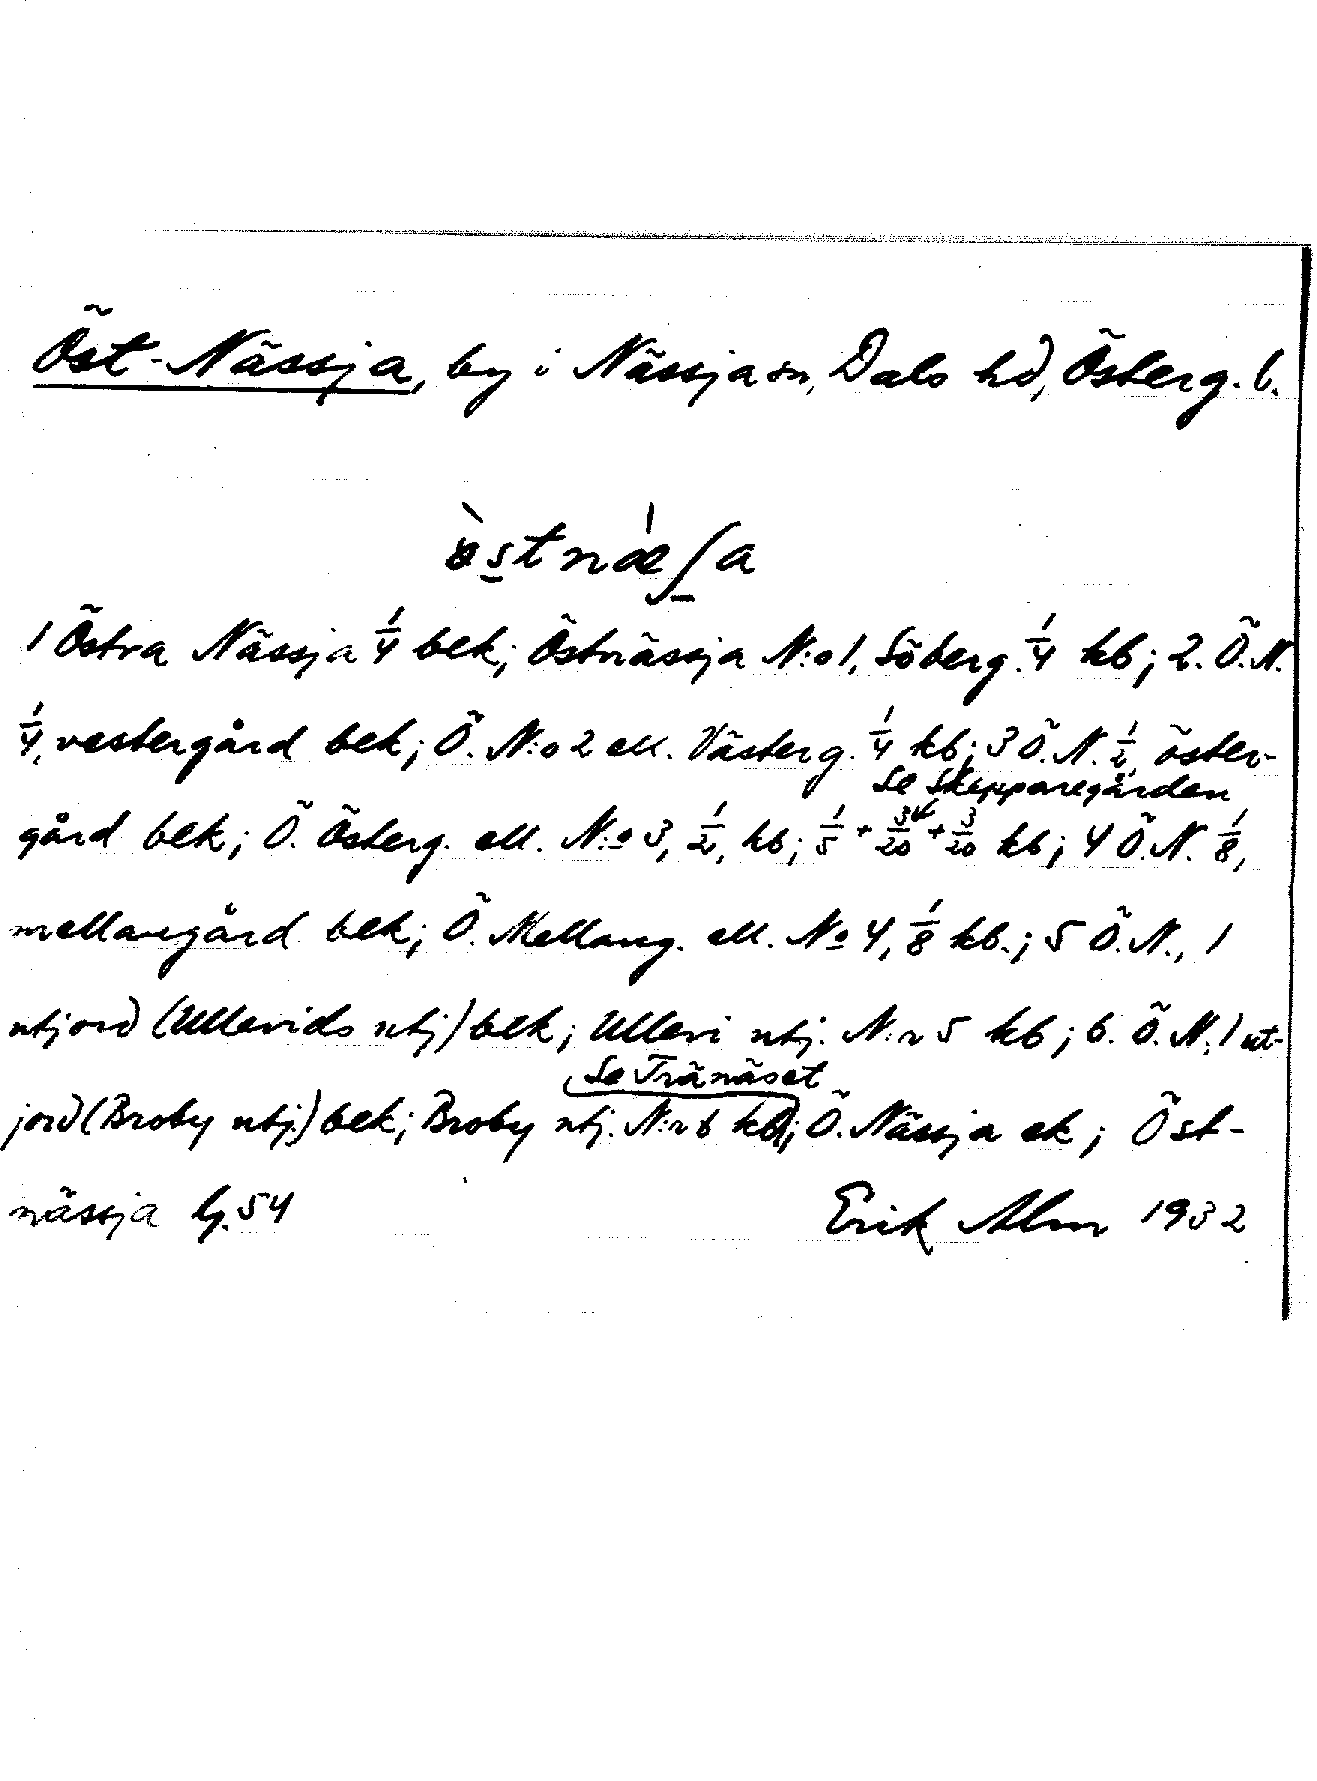 Öst-Nässja, by i Nässja sn, Dals hd, Österg. l.
ò̈stnæʃa
1 Östra Nässja 1/4 bek; Östnässja N:o 1, Söberg. 1/4 kb; 2. Ö.N.
1/4, vestergård bek; Ö. N:o 2 ell. Västerg. 1/4 kb; 3 Ö.N. 1/2, öster-
Se Skepparegården
gård bek; Ö. Österg. ell. N:o 3, 1/2, kb; 1/5 + 3/20 + 3/20 kb; 4 Ö.N. 1/8,
mellangård bek; Ö. Mellang. ell. No 4, 1/8 kb.; 5 Ö.N., 1
utjord (Ullevids utj) bek; Ullevi utj. N:r 5 kb; 6. Ö.N., 1 ut-
Se Tränäset
jord (Broby utj.) bek; Broby utj. N:r 6 kb; Ö. Nässja ek; Öst-
nässja lj. 54 Erik Alm 1932